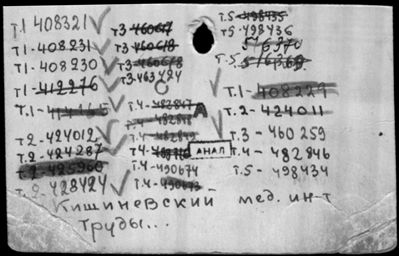 Т1 408321
Т1-408231
Т1-408230
Т1-412276
Т.1-
Т.2-424012
Т.2-424287
Т.2-425960
Т.2-428424
Т3-460617
Т3-460618
Т3-460618
Т3-463424
Т.4-482847
482848
Т.4-482849
Т.4-
Т.4-490674
Т.4-490673
А
АНАЛ
Т.5-498435
Т5-498436
516370
Т.5-516369
Т.1-408229
Т.2-424011
Т.3-460259
Т.4-482846
Т.5-498434
Кишиневский мед. ин-т
Труды...